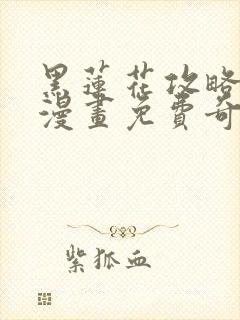 黑蓮花攻略
漫畫免費奇
紫狐血